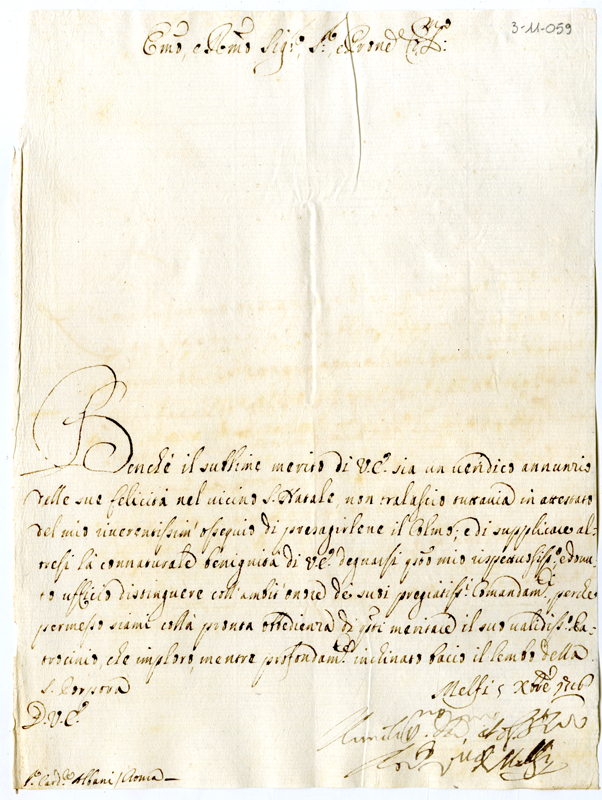 3-11-059
Emo, e Rmo Sigr, Sr, e Pron
Benché il sublime merito di V.E. sia un veridico annunzio
delle sue felicità nel vicino S. Natale, non tralascio tuttavia in attestato
del mio riverentissim' ossequio di presagirlene il Colmo, e di supplicare al-
tresì la connaturale benignità di V.E. degnarsi mio ossequiosiss. e dovu-
to ufficio distinguere coll' ambit' onore de suoi pregiatissi Comandam., perche
permesso siami colla pronta obbidienza di meritare il suo validiss. Pa-
trocinio, che imploro, mentre profondam. inchinato bacio il lembo della
S. Porpora
Melfi 5 Xbre
D.V.E.
Melfi
Sr Card. Albani / Roma